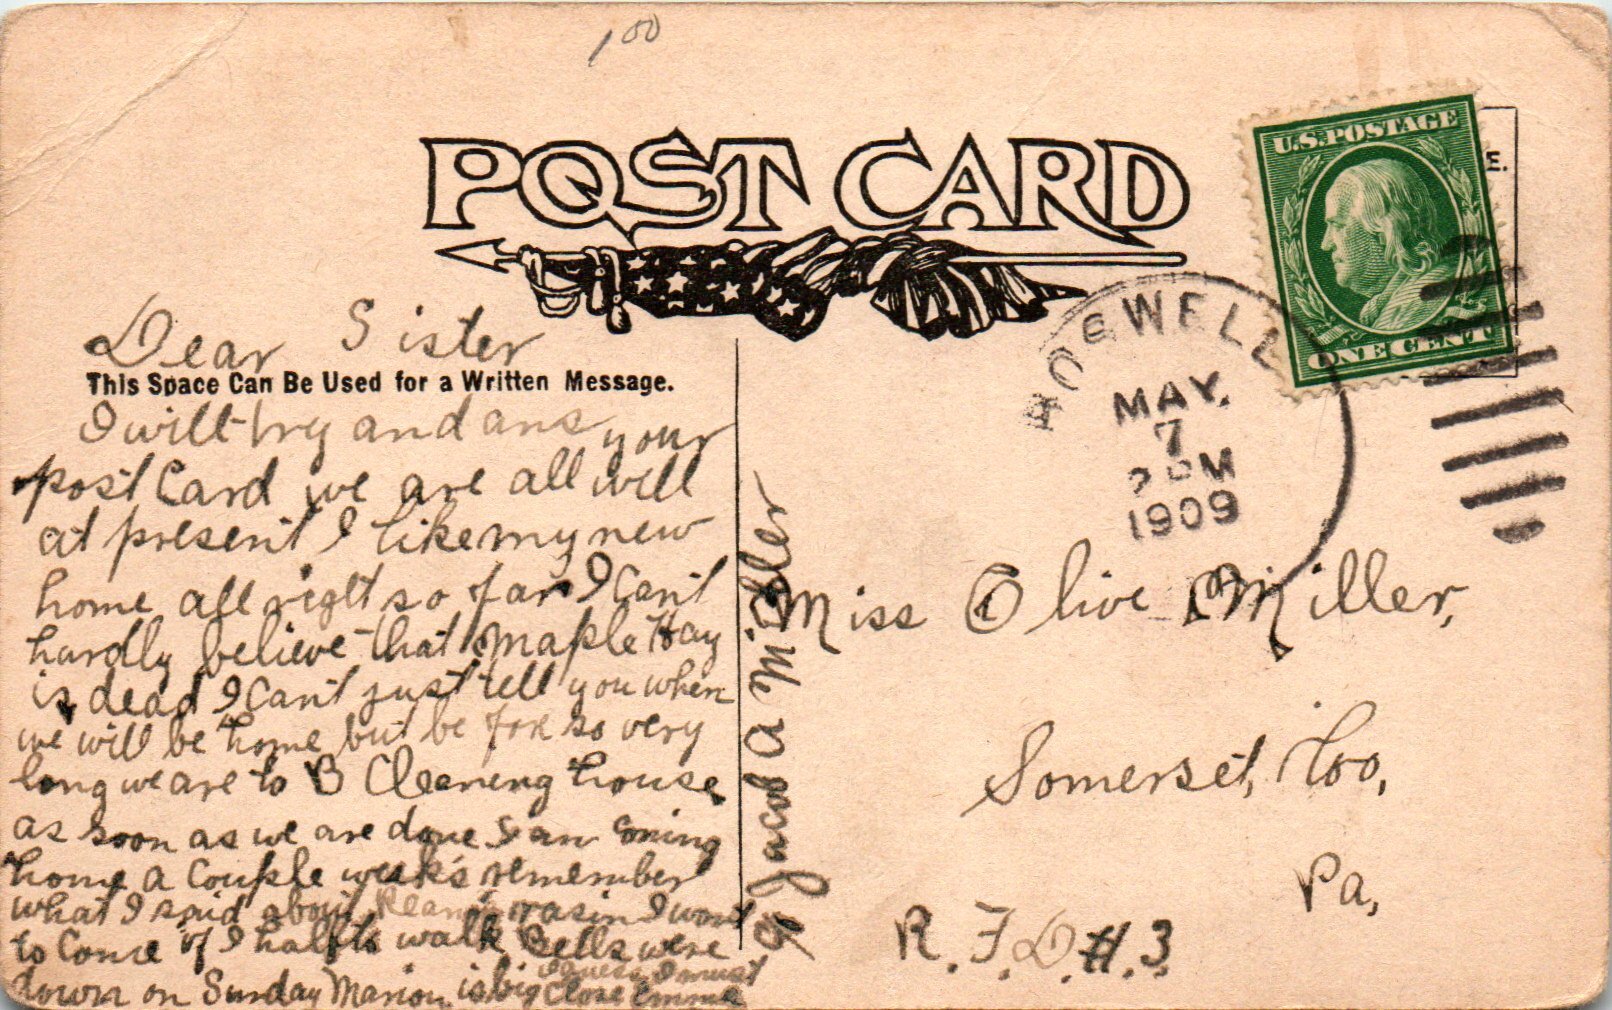 1.00
POST CARD
U.S. POSTAGE
ONE CENT
E.
ROSWELL
MAY.
7
PM
1909
Dear Sister
This Space Can Be Used for a Written Message.
I will try and ans your
post Card we are all will
at present I like my new
home all right so far I Can't
hardly believe that Maple Hay
is dead I Can't just tell you when
we will be home but be for so very
long we are to B Cleaning house
as soon as we are done I am coming
home a Couple week's remember
what I said about I want
to Come if I half to walk Bells were
down on Sunday Marion is big
I guess I must
Close Emma
& Jacob A Miller
Miss Olive Miller,
Somerset, Co,
Pa,
R.F.D.#.3